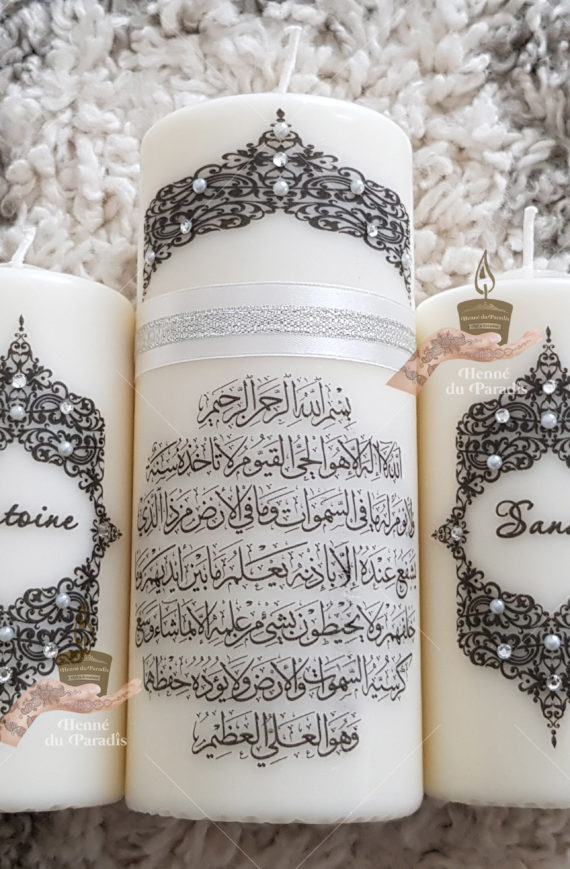 بِسْمِ اللهِ الرَّحْمٰنِ الرَّحِيْمِ
اَللهُ لَا اِلٰهَ اِلَّا هُوَ الْحَيُّ الْقَيُّوْمُ لَا تَأْخُذُهُ سِنَةٌ
وَلَا نَوْمٌ لَهُ مَا فِي السَّمٰوَاتِ وَمَا فِي الْاَرْضِ مَنْ ذَا الَّذِيْ
يَشْفَعُ عِنْدَهُ اِلَّا بِاِذْنِهِ يَعْلَمُ مَا بَيْنَ اَيْدِيْهِمْ وَمَا
خَلْفَهُمْ وَلَا يُحِيْطُوْنَ بِشَيْءٍ مِنْ عِلْمِهِ اِلَّا بِمَا شَاءَ وَسِعَ
كُرْسِيُّهُ السَّمٰوَاتِ وَالْاَرْضَ وَلَا يَؤُدُهُ حِفْظُهُمَا
وَهُوَ الْعَلِيُّ الْعَظِيْمُ
toine
San
Henné du Paradis
Henné
du Paradis
Henné du Paradis
Henné
du Paradis